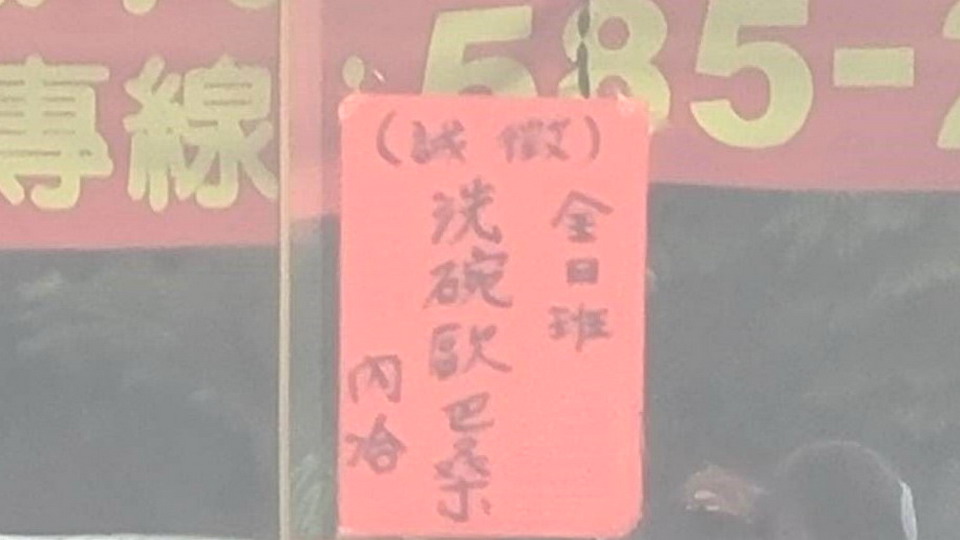 專線：585-
（誠徵）
全日班
洗碗歐巴桑
內洽